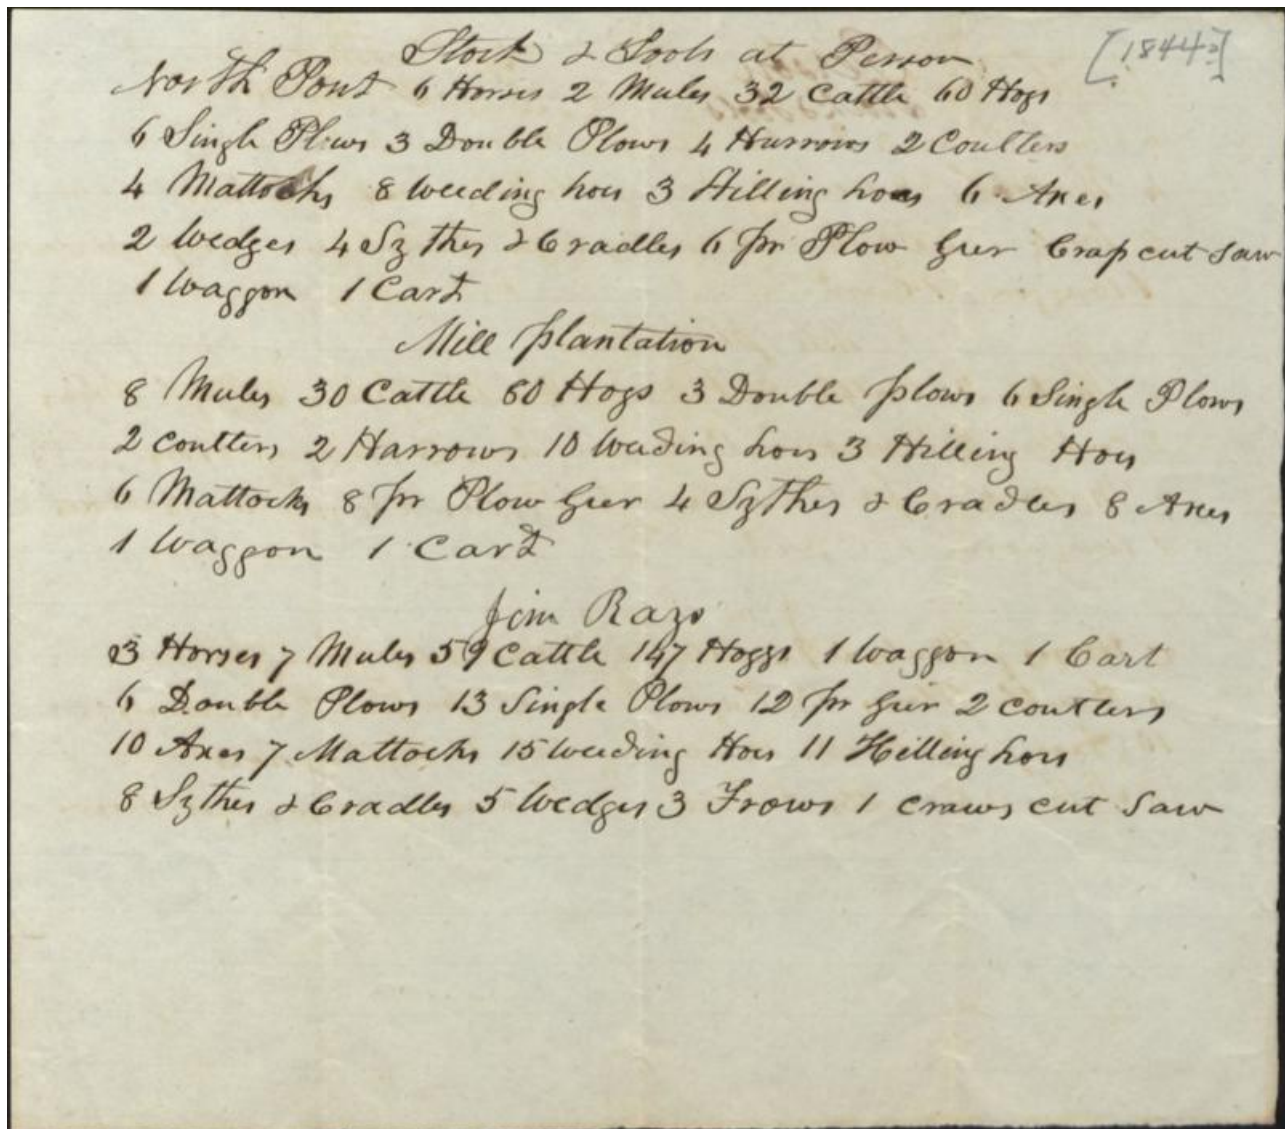 [1844?]
Stock & Tools at Person
North Pont 6 Horses 2 Mules 32 Cattle 60 Hogs
6 Single Plows 3 Double Plows 4 Harrows 2 Coulters
4 Mattocks 8 Weeding hoes 3 Hilling hoes 6 Axes
2 Wedges 4 Sythes & Cradles 6 pr Plow Geer Crap cut Saw
1 Waggon 1 Cart
Mill plantation
8 Mules 30 Cattle 60 Hogs 3 Double plows 6 Single Plows
2 coulters 2 Harrows 10 Weeding hoes 3 Hilling Hoes
6 Mattocks 8 pr Plow Geer 4 Sythes & Cradles 8 Axes
1 Waggon 1 Cart
Jim Rays
3 Horses 7 Mules 59 Cattle 147 Hoggs 1 Waggon 1 Cart
6 Double Plows 13 Single Plows 12 pr Geer 2 coulters
10 Axes 7 Mattocks 15 Weeding Hoes 11 Hilling hoes
8 Sythes & Cradles 5 Wedges 3 Frows 1 craws cut Saw